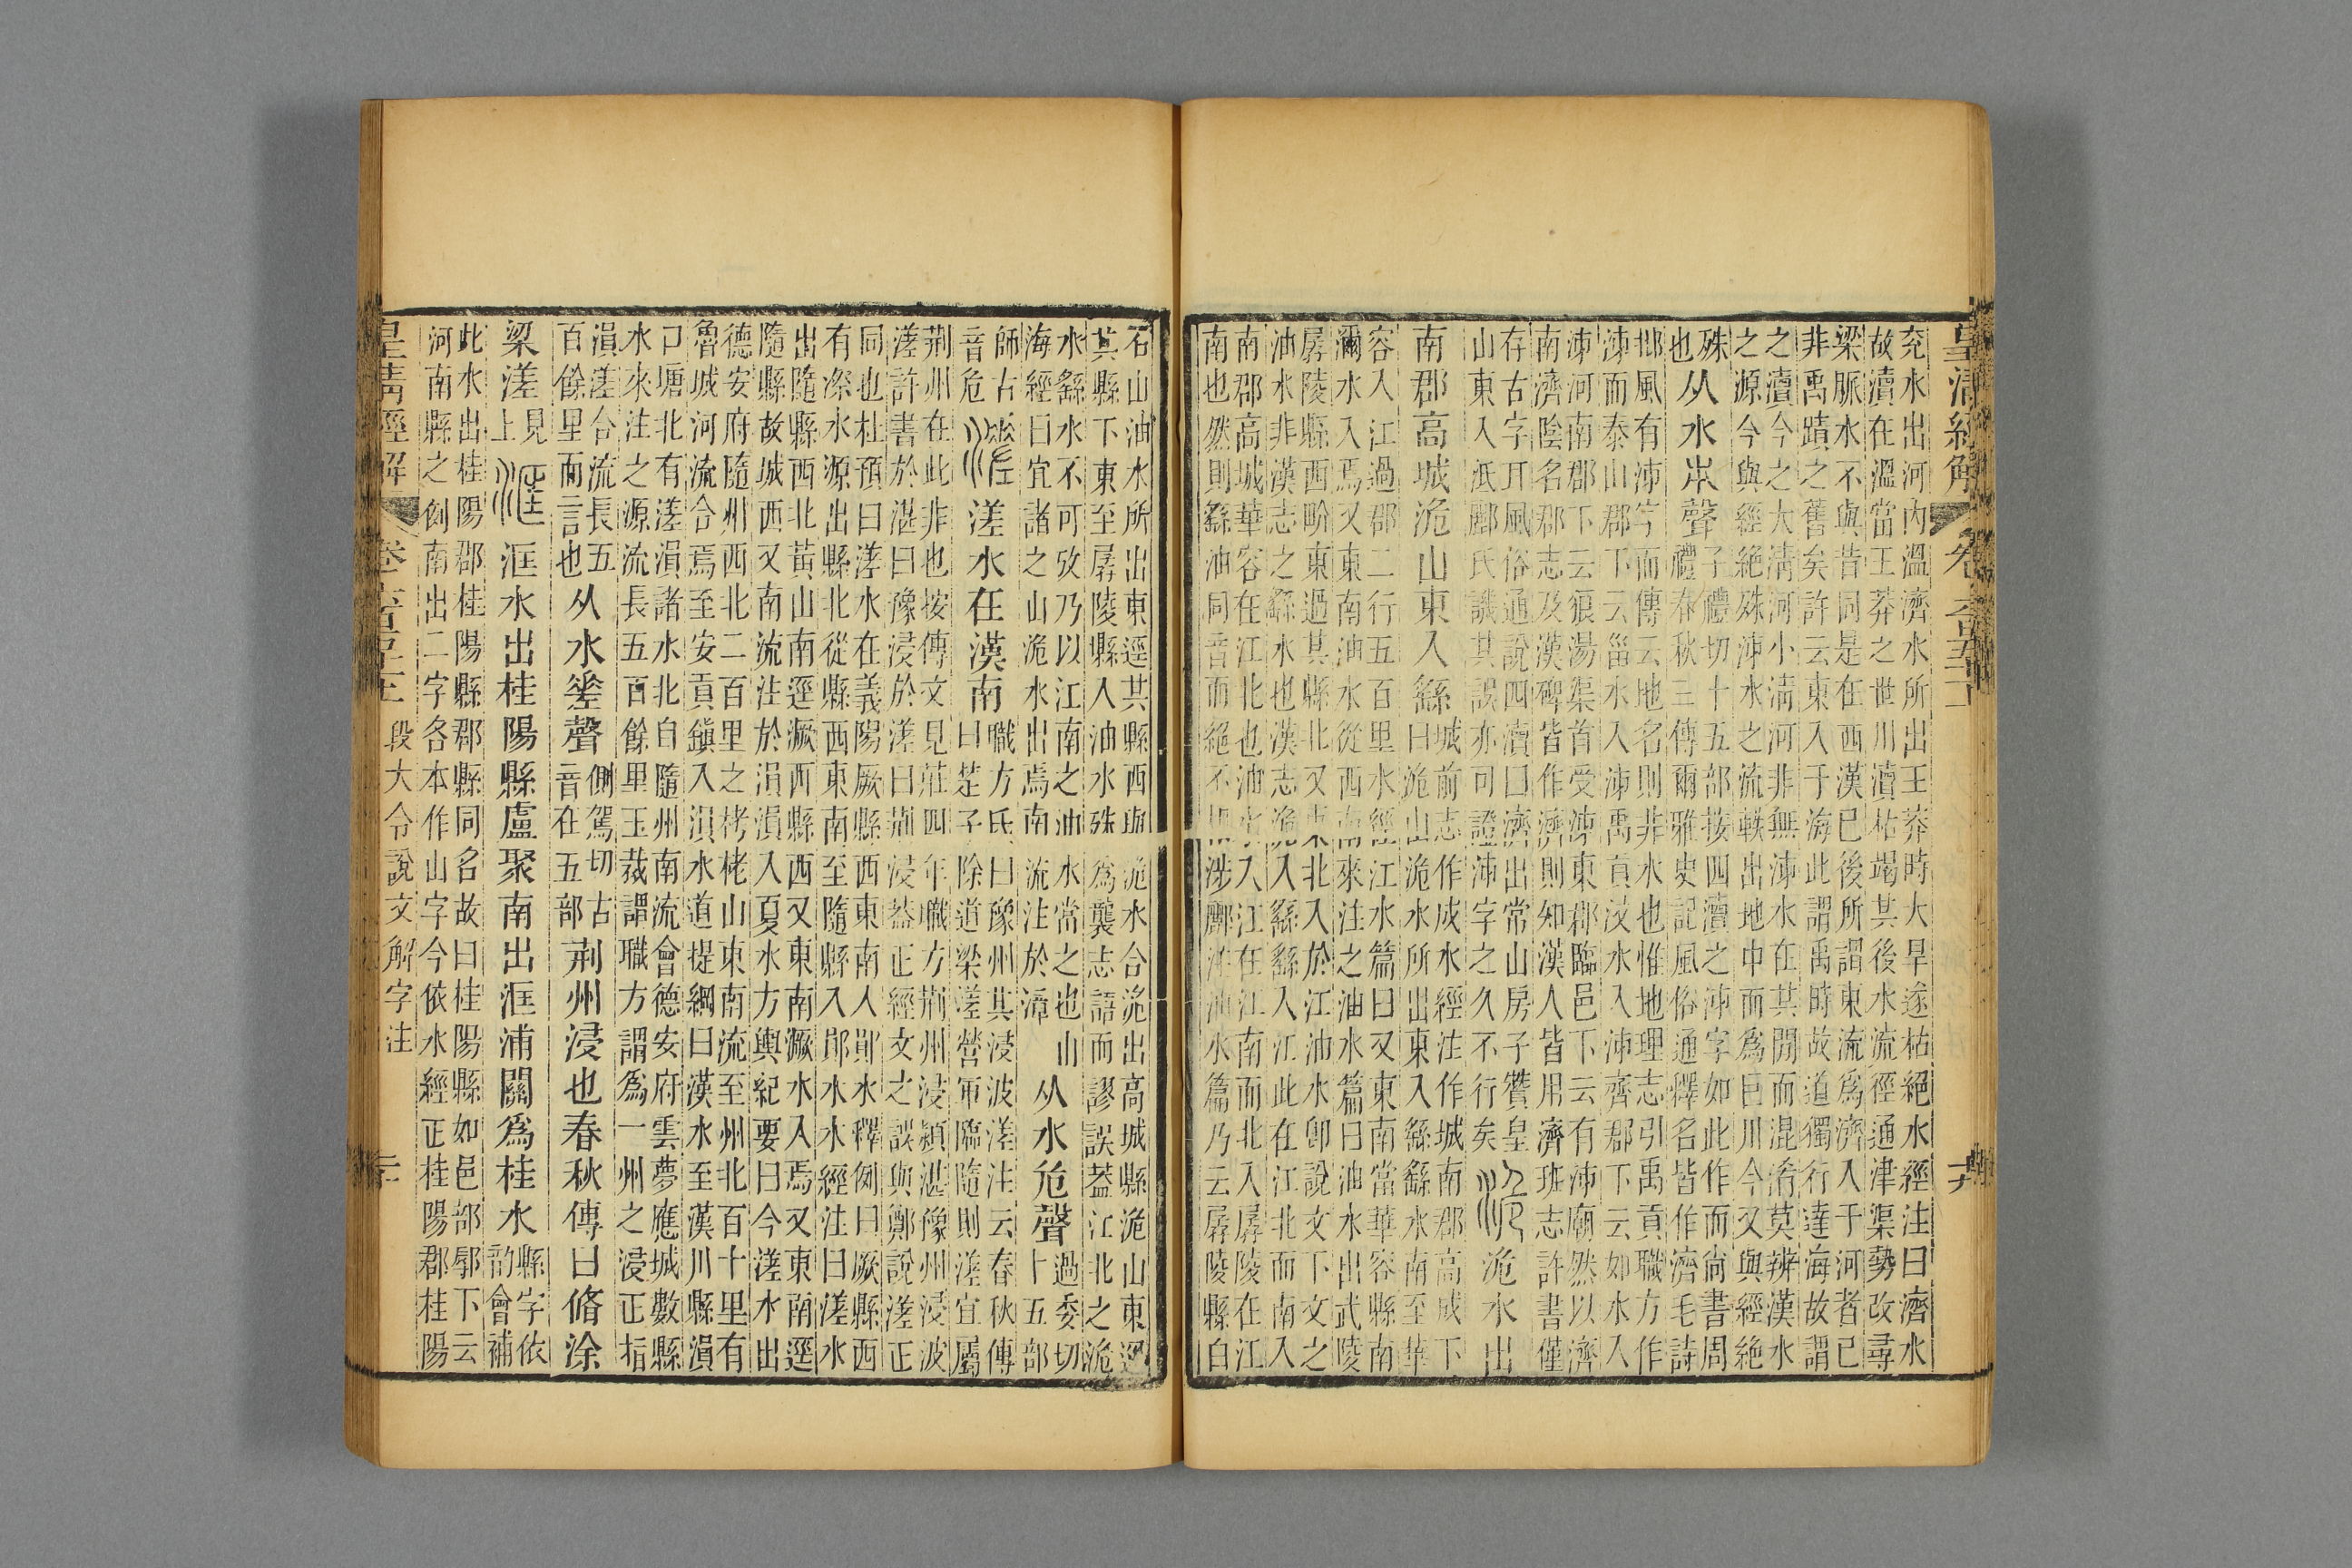 皇清經解 卷六百五十一 九
兖水出河內溫濟水所出王莽時大旱遂枯絕水經注曰濟水
故瀆在溫當王莽之世川瀆枯竭其後水流逕通津渠勢改尋
梁脈水不與昔同是在西漢已後所謂東流爲濟入于河者已
非禹蹟之舊矣許云東入于海此謂禹時故道獨行達海故謂
之瀆今之大淸河小淸河非無泲水在其閒而混淆莫辨漢水
之源今與經絕殊泲水之流軼出地中而爲巨川今又與經絕
殊也 从水𠂔聲 子禮切十五部按四瀆之泲字如此作而尙書周
禮春秋三傳爾雅史記風俗通釋名皆作濟毛詩
邶風有泲字而傳云地名則非水也惟地理志引禹貢職方作
泲而泰山郡下云甾水入泲禹貢汶水入泲齊郡下云如水入
泲河南郡下云狼湯渠首受泲東郡臨邑下云有泲廟然以濟
南濟陰名郡志及漢碑皆作濟則知漢人皆用濟班志許書僅
存古字耳風俗通說四瀆曰濟出常山房子贊皇
山東入泜酈氏譏其誤亦可證泲字之久不行矣 洈 洈水出
南郡高城洈山東入繇 城前志作成水經注作城南郡高成下
曰洈山洈水所出東入繇繇水南至華
容入江過郡二行五百里水經江水篇曰又東南當華容縣南
瀰水入焉又東南油水從西南來注之油水篇曰油水出武陵
孱陵縣西畍東過其縣北又東北入於江油水卽說文下文之
油水非漢志之繇水也漢志洈入繇繇入江此在江北而南入
南郡高城華容在江北也油水入江在江南而北入孱陵在江
南也然則繇油同音而絕不相涉酈注油水篇乃云孱陵縣白
石山油水所出東逕其縣西與洈水合洈出高城縣洈山東逕
其縣下東至孱陵縣入油水殊爲襲志語而謬誤葢江北之洈
水繇水不可攷乃以江南之油水當之也山
海經曰宜諸之山洈水出焉南流注於漳 从水危聲 過委切
十五部
師古
音危 溠 溠水在漢南 職方氏曰豫州其浸波溠注云春秋傳
曰楚子除道梁溠營軍臨隨則溠宜屬
荊州在此非也按傳文見莊四年職方荊州浸潁湛豫州浸波
溠許書於湛曰豫浸於溠曰荊浸葢正經文之誤與鄭說溠正
同也杜預曰溠水在義陽厥縣西東南入鄖水釋例曰厥縣西
有溠水源出縣北從縣西東南至隨縣入鄖水水經注曰溠水
出隨縣西北黃山南逕㵐西縣西又東南㵐水入焉又東南逕
隨縣故城西又南流注於溳溳入夏水方輿紀要曰今溠水出
德安府隨州西北二百里之栲栳山東南流至州北百十里有
魯城河流合焉至安貢鎭入溳水道提綱曰漢水至漢川縣溳
口塘北有溠溳諸水北自隨州南流會德安府雲夢應城數縣
水來注之源流長五百餘里玉裁謂職方謂爲一州之浸正指
溳溠合流長五
百餘里而言也 从水𡍮聲 側駕切古
音在五部 荊州浸也春秋傳曰脩涂
梁溠 見
上 洭 洭水出桂陽縣盧聚南出洭浦關爲桂水 縣字依
韵會補
此水出桂陽郡桂陽縣郡縣同名故曰桂陽縣如邑部郭下云
河南縣之例南出二字各本作山字今依水經正桂陽郡桂陽
皇清經解 卷六百五十一 段大令說文解字注 二十